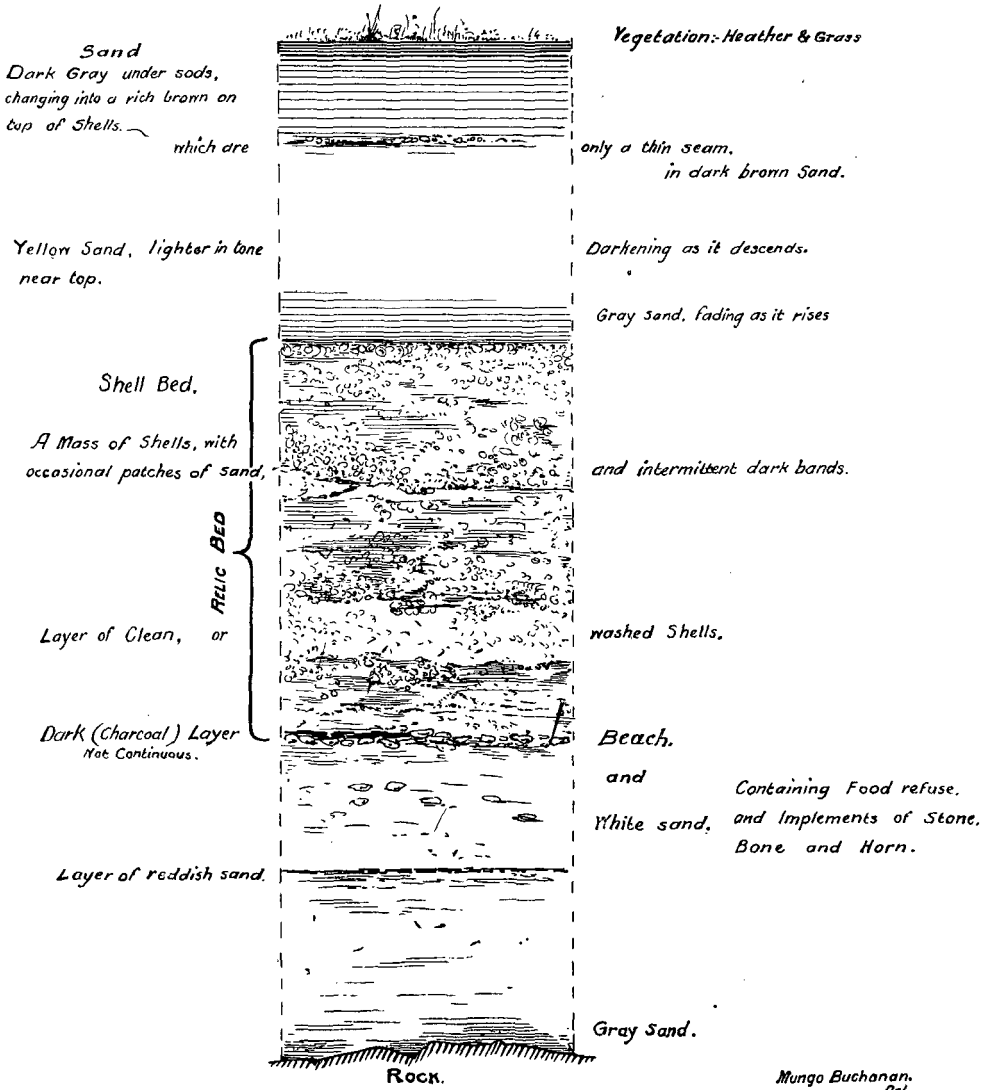 Vegetation:- Heather & Grass
Sand
Dark Gray under sods,
changing into a rich brown on
top of Shells.
which are
only a thin seam.
in dark brown Sand.
Yellow Sand, lighter in tone
near top.
Darkening as it descends.
Gray sand, fading as it rises
Shell Bed.
A Mass of Shells, with
occasional patches of sand,
and intermittent dark bands.
RELIC BED
Layer of Clean, or
washed Shells.
Dark (Charcoal) Layer
Not Continuous.
Beach.
and
White sand.
Containing Food refuse.
and Implements of Stone,
Bone and Horn.
Layer of reddish sand.
Gray Sand.
ROCK.
Mungo Buchanan.
Del.